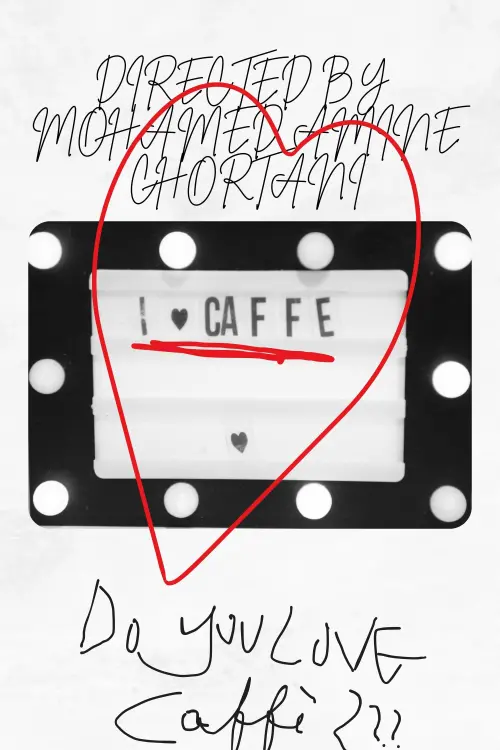 DIRECTED BY
MOHAMED AMINE
GHORTANI
I ♥ CAFFE
♥
Do you LOVE
Caffè ???